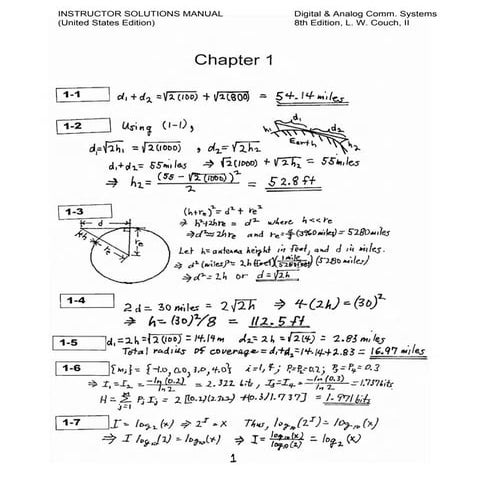 INSTRUCTOR SOLUTIONS MANUAL Digital & Analog Comm. Systems
(United States Edition) 8th Edition, L. W. Couch, II
Chapter 1
1-1 d₁ + d₂ = √2(100) + √2(800) = 54.14 miles
1-2 Using (1-1),
d₁ = √2h₁ = √2(1000) , d₂ = √2h₂
h₁ d₁ d₂ h₂ Earth
d₁ + d₂ = 55 miles ⇒ √2(1000) + √2h₂ = 55 miles
⇒ h₂ = (55 − √2(1000))² / 2 = 52.8 ft
1-3 (h+rₑ)² = d² + rₑ²
⇒ h² + 2hrₑ = d² where h<<rₑ
⇒ d² = 2hrₑ and rₑ = (3960 miles) = 5280 miles
Let h = antenna height in feet, and d in miles.
⇒ d²(miles)² = 2h (feet)(1 mile/5280 feet)(5280 miles)
⇒ d² = 2h or d = √2h
d h rₑ rₑ
1-4 2d = 30 miles = 2√2h ⇒ 4(2h) = (30)²
⇒ h = (30)²/8 = 112.5 ft
1-5 d₁ = 2h = √2(100) = 14.14 d₂ = 2h = √2(4) = 2.83 mi
Total radius of coverage = d₁+d₂ = 14.14 + 2.83 = 16.97 miles
1-6 {mᵢ} = {-1.0, 0.0, 3.0, 4.0} i=1,4; P₁=P₂=0.2; P₃=P₄=0.3
⇒ I₁ = I₂ = −ln(0.2)/ln 2 = 2.322 bits, I₃=I₄ = −ln(0.3)/ln 2 = 1.737 bits
H = Σ Pⱼ Iⱼ = 2 [(0.2)(2.322) + (0.3)1.737] = 1.971 bits
1-7 I = log₂(x) ⇒ 2^I = x Thus, log₁₀(2^I) = log₁₀(x)
⇒ I log₁₀(2) = log₁₀(x) ⇒ I = log₁₀(x)/log₁₀(2) = log₂(x)
1